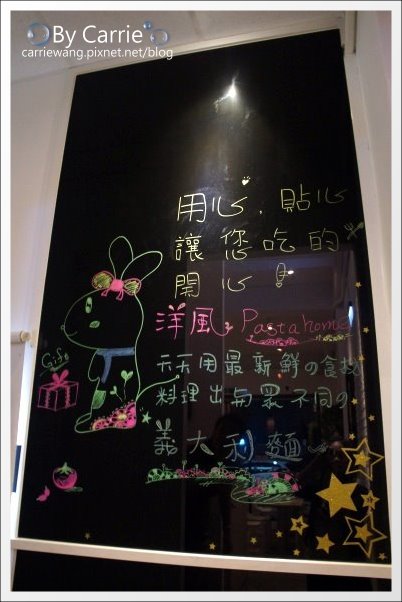 By Carrie
carriewang.pixnet.net/blog
用心，貼心
讓您吃的
開心！
洋風 Pastahome
天天用最新鮮の食材
料理出與眾不同の
義大利麵
Gift